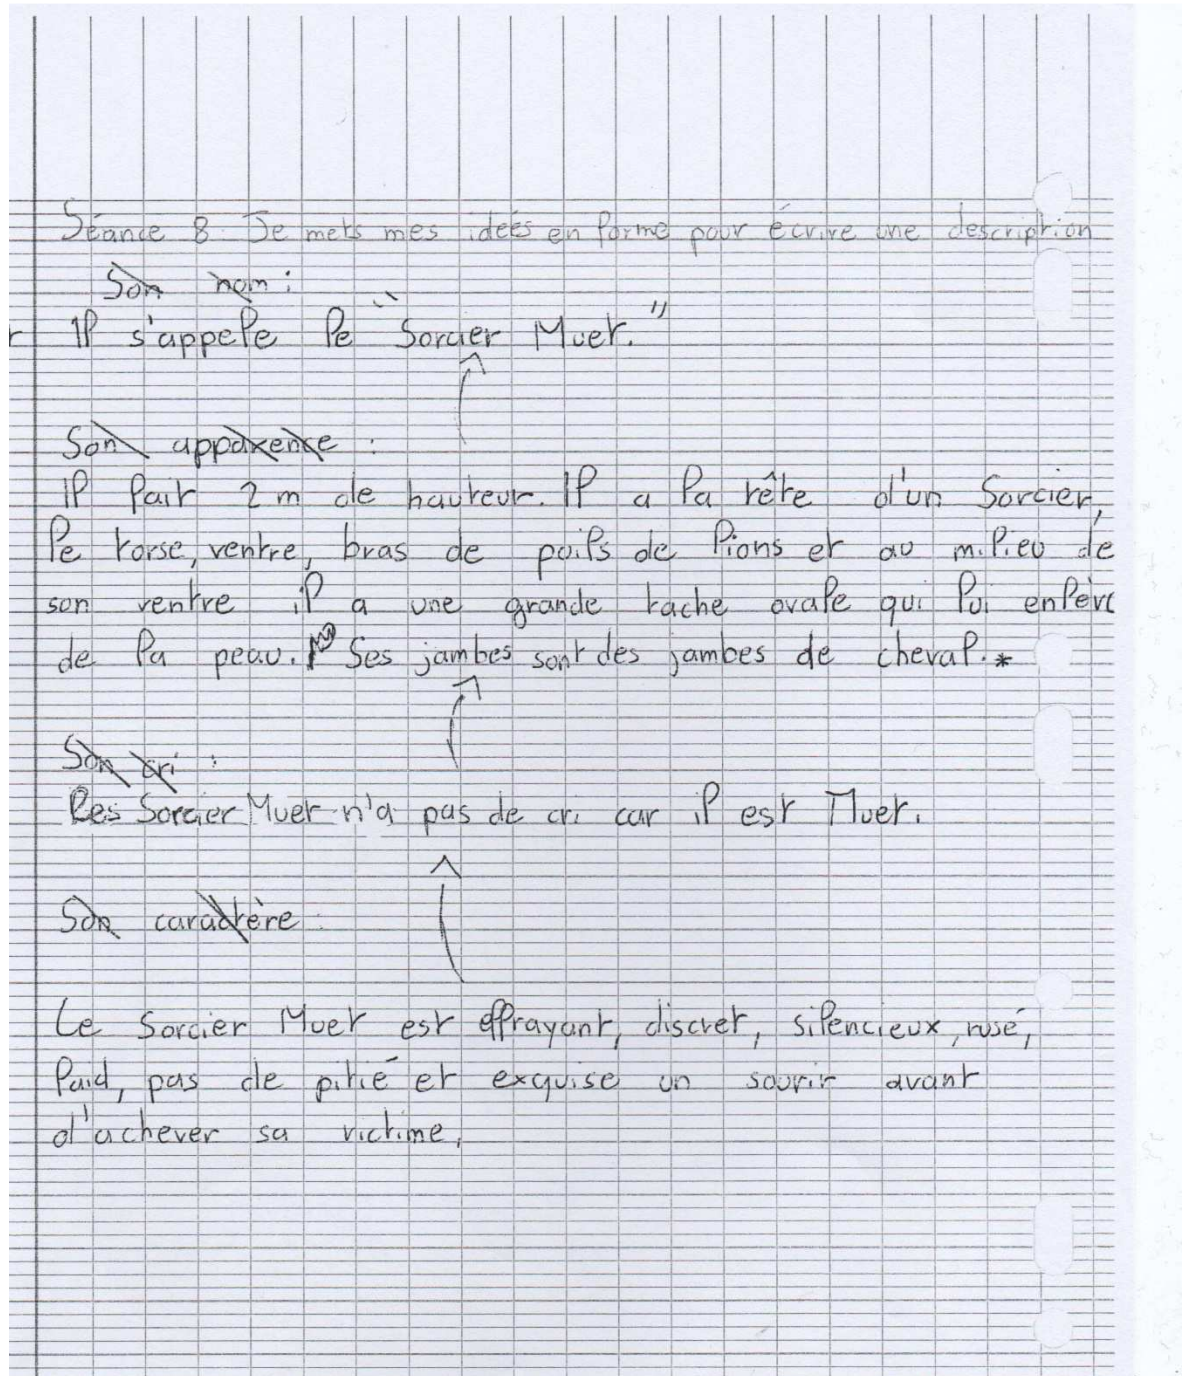 Séance 8 Je mets mes idées en forme pour écrire une description
Son nom :
Il s'appele le "Sorcier Muet."
Son apparence :
Il fait 2 m de hauteur. Il a la tête d'un Sorcier,
le torse, ventre, bras de poils de lions et au milieu de
son ventre il a une grande tache ovale qui lui enlève
de la peau. Ses jambes sont des jambes de cheval.*
Son cri :
Les Sorcier Muet n'a pas de cri car il est Muet.
Son caractère :
Le Sorcier Muet est effrayant, discret, silencieux, rusé,
laid, pas de pitié et exquise un sourir avant
d'achever sa victime.